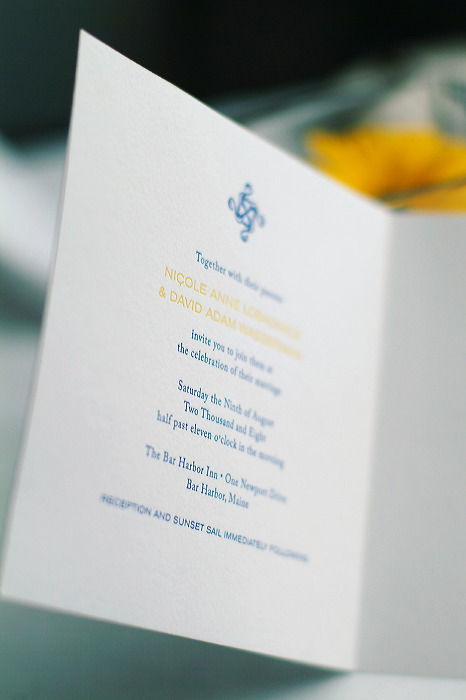 Together with their parents
NICOLE ANNE
& DAVID ADAM
invite you to join them at
the celebration of their marriage
Saturday the Ninth of August
Two Thousand and Eight
half past eleven o'clock in the morning
The Bar Harbor Inn • One Newport Drive
Bar Harbor, Maine
RECEPTION AND SUNSET SAIL IMMEDIATELY FOLLOWING